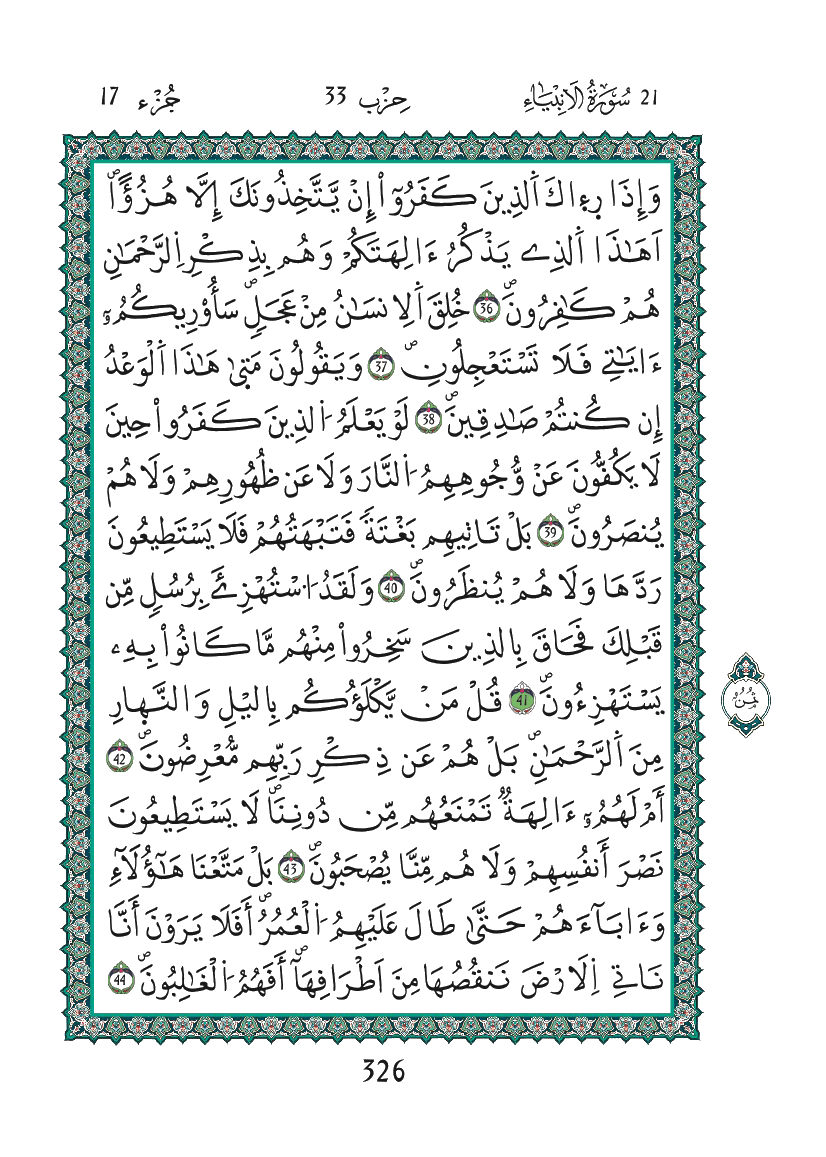 21 سُورَةُ الْأَنْبِيَاءِ حِزْب 33 جُزْء 17
وَإِذَا رِءاكَ اَ۬لذِينَ كَفَرُوٓاْ إِنْ يَّتَّخِذُونَكَ إِلَّا هُزُؤاًۖ
اَهَٰذَا اَ۬لذِے يَذْكُرُ ءَالِهَتَكُمْ وَهُم بِذِكْرِ اِ۬لرَّحْمَٰنِ
هُمْ كَٰفِرُونَۖ 36 خُلِقَ اَ۬لِانسَٰنُ مِنْ عَجَلٖۖ سَأُوْرِيكُمُۥٓ
ءَايَٰتِے فَلَا تَسْتَعْجِلُونِۖ 37 وَيَقُولُونَ مَتىٰ هَٰذَا اَ۬لْوَعْدُ
إِن كُنتُمْ صَٰدِقِينَۖ 38 لَوْ يَعْلَمُ اُ۬لذِينَ كَفَرُواْ حِينَ
لَا يَكُفُّونَ عَنْ وُّجُوهِهِمُ اُ۬لنَّارَ وَلَا عَن ظُهُورِهِمْ وَلَا هُمْ
يُنصَرُونَۖ 39 بَلْ تَاتِيهِم بَغْتَةٗ فَتَبْهَتُهُمْ فَلَا يَسْتَطِيعُونَ
رَدَّهَا وَلَا هُمْ يُنظَرُونَۖ 40 وَلَقَدُ اُ۟سْتُهْزِئَ بِرُسُلٖ مِّن
قَبْلِكَ فَحَاقَ بِالذِينَ سَخِرُواْ مِنْهُم مَّا كَانُواْ بِهِۦ
يَسْتَهْزِءُونَۖ 41 قُلْ مَنْ يَّكْلَؤُكُم بِاليْلِ وَالنَّهارِ
مِنَ اَ۬لرَّحْمَٰنِۖ بَلْ هُمْ عَن ذِكْرِ رَبِّهِم مُّعْرِضُونَۖ 42
أَمْ لَهُمُۥٓ ءَالِهَةٞ تَمْنَعُهُم مِّن دُونِنَاۖ لَا يَسْتَطِيعُونَ
نَصْرَ أَنفُسِهِمْ وَلَا هُم مِّنَّا يُصْحَبُونَۖ 43 بَلْ مَتَّعْنَا هَٰٓؤُلَآءِ
وَءَابَآءَهُمْ حَتَّىٰ طَالَ عَلَيْهِمُ اُ۬لْعُمُرُۖ أَفَلَا يَرَوْنَ أَنَّا
نَاتِے اِ۬لَارْضَ نَنقُصُهَا مِنَ اَطْرَافِهَاۖ أَفَهُمُ اُ۬لْغَٰلِبُونَۖ 44
ثُمُن
326